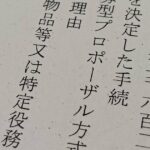 を決定した手続
型プロポーザル方式
理由
物品等又は特定役務